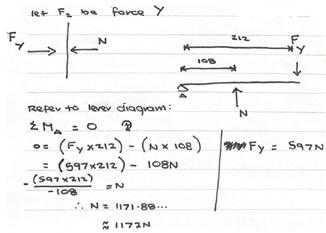 let F₂ be force Y
F
Y
N
212
F
Y
108
A
N
Refer to lever diagram:
ΣM_A = 0
0 = (Fy × 212) - (N × 108)
Fy = 597N
= (597×212) - 108N
-(597×212)
-108
= N
∴ N = 1171.88...
≈ 1172N